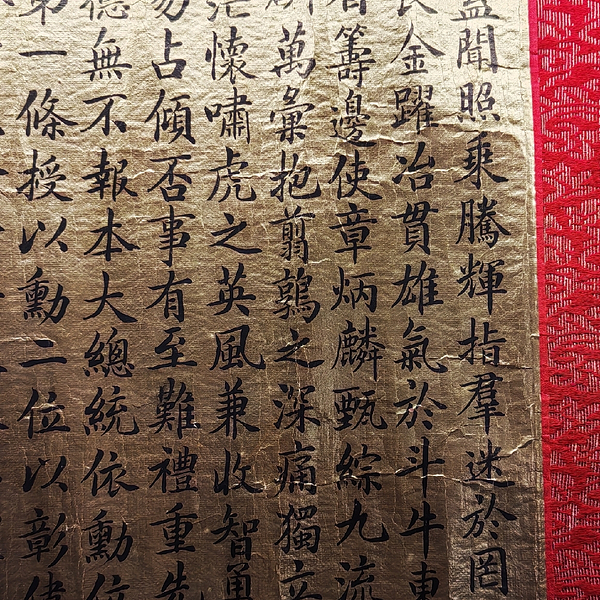 聞照乘騰輝指羣迷於罔
金躍冶貫雄氣於斗牛
籌邊使章炳麟甄綜九流
萬彙抱翦鶉之深痛獨立
茫懷嘯虎之英風兼收智勇
易占傾否事有至難禮重先
德無不報本大總統依勳位
第一條授以勳二位以彰偉